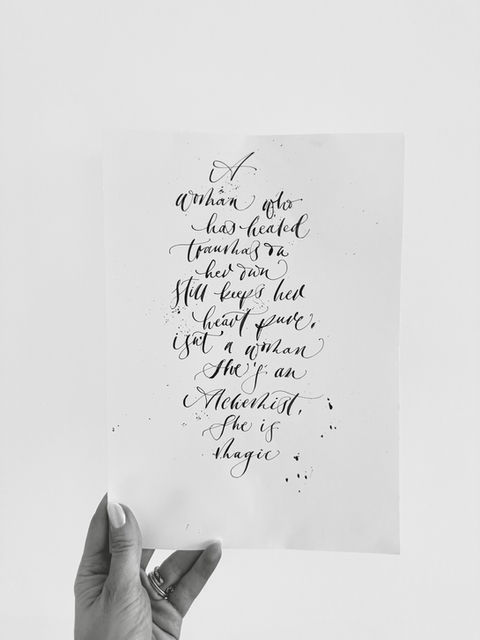 A
woman who
has healed
traumas on
her own
still keeps her
heart pure,
isn't a woman
She's an
Alchemist,
She is
Magic